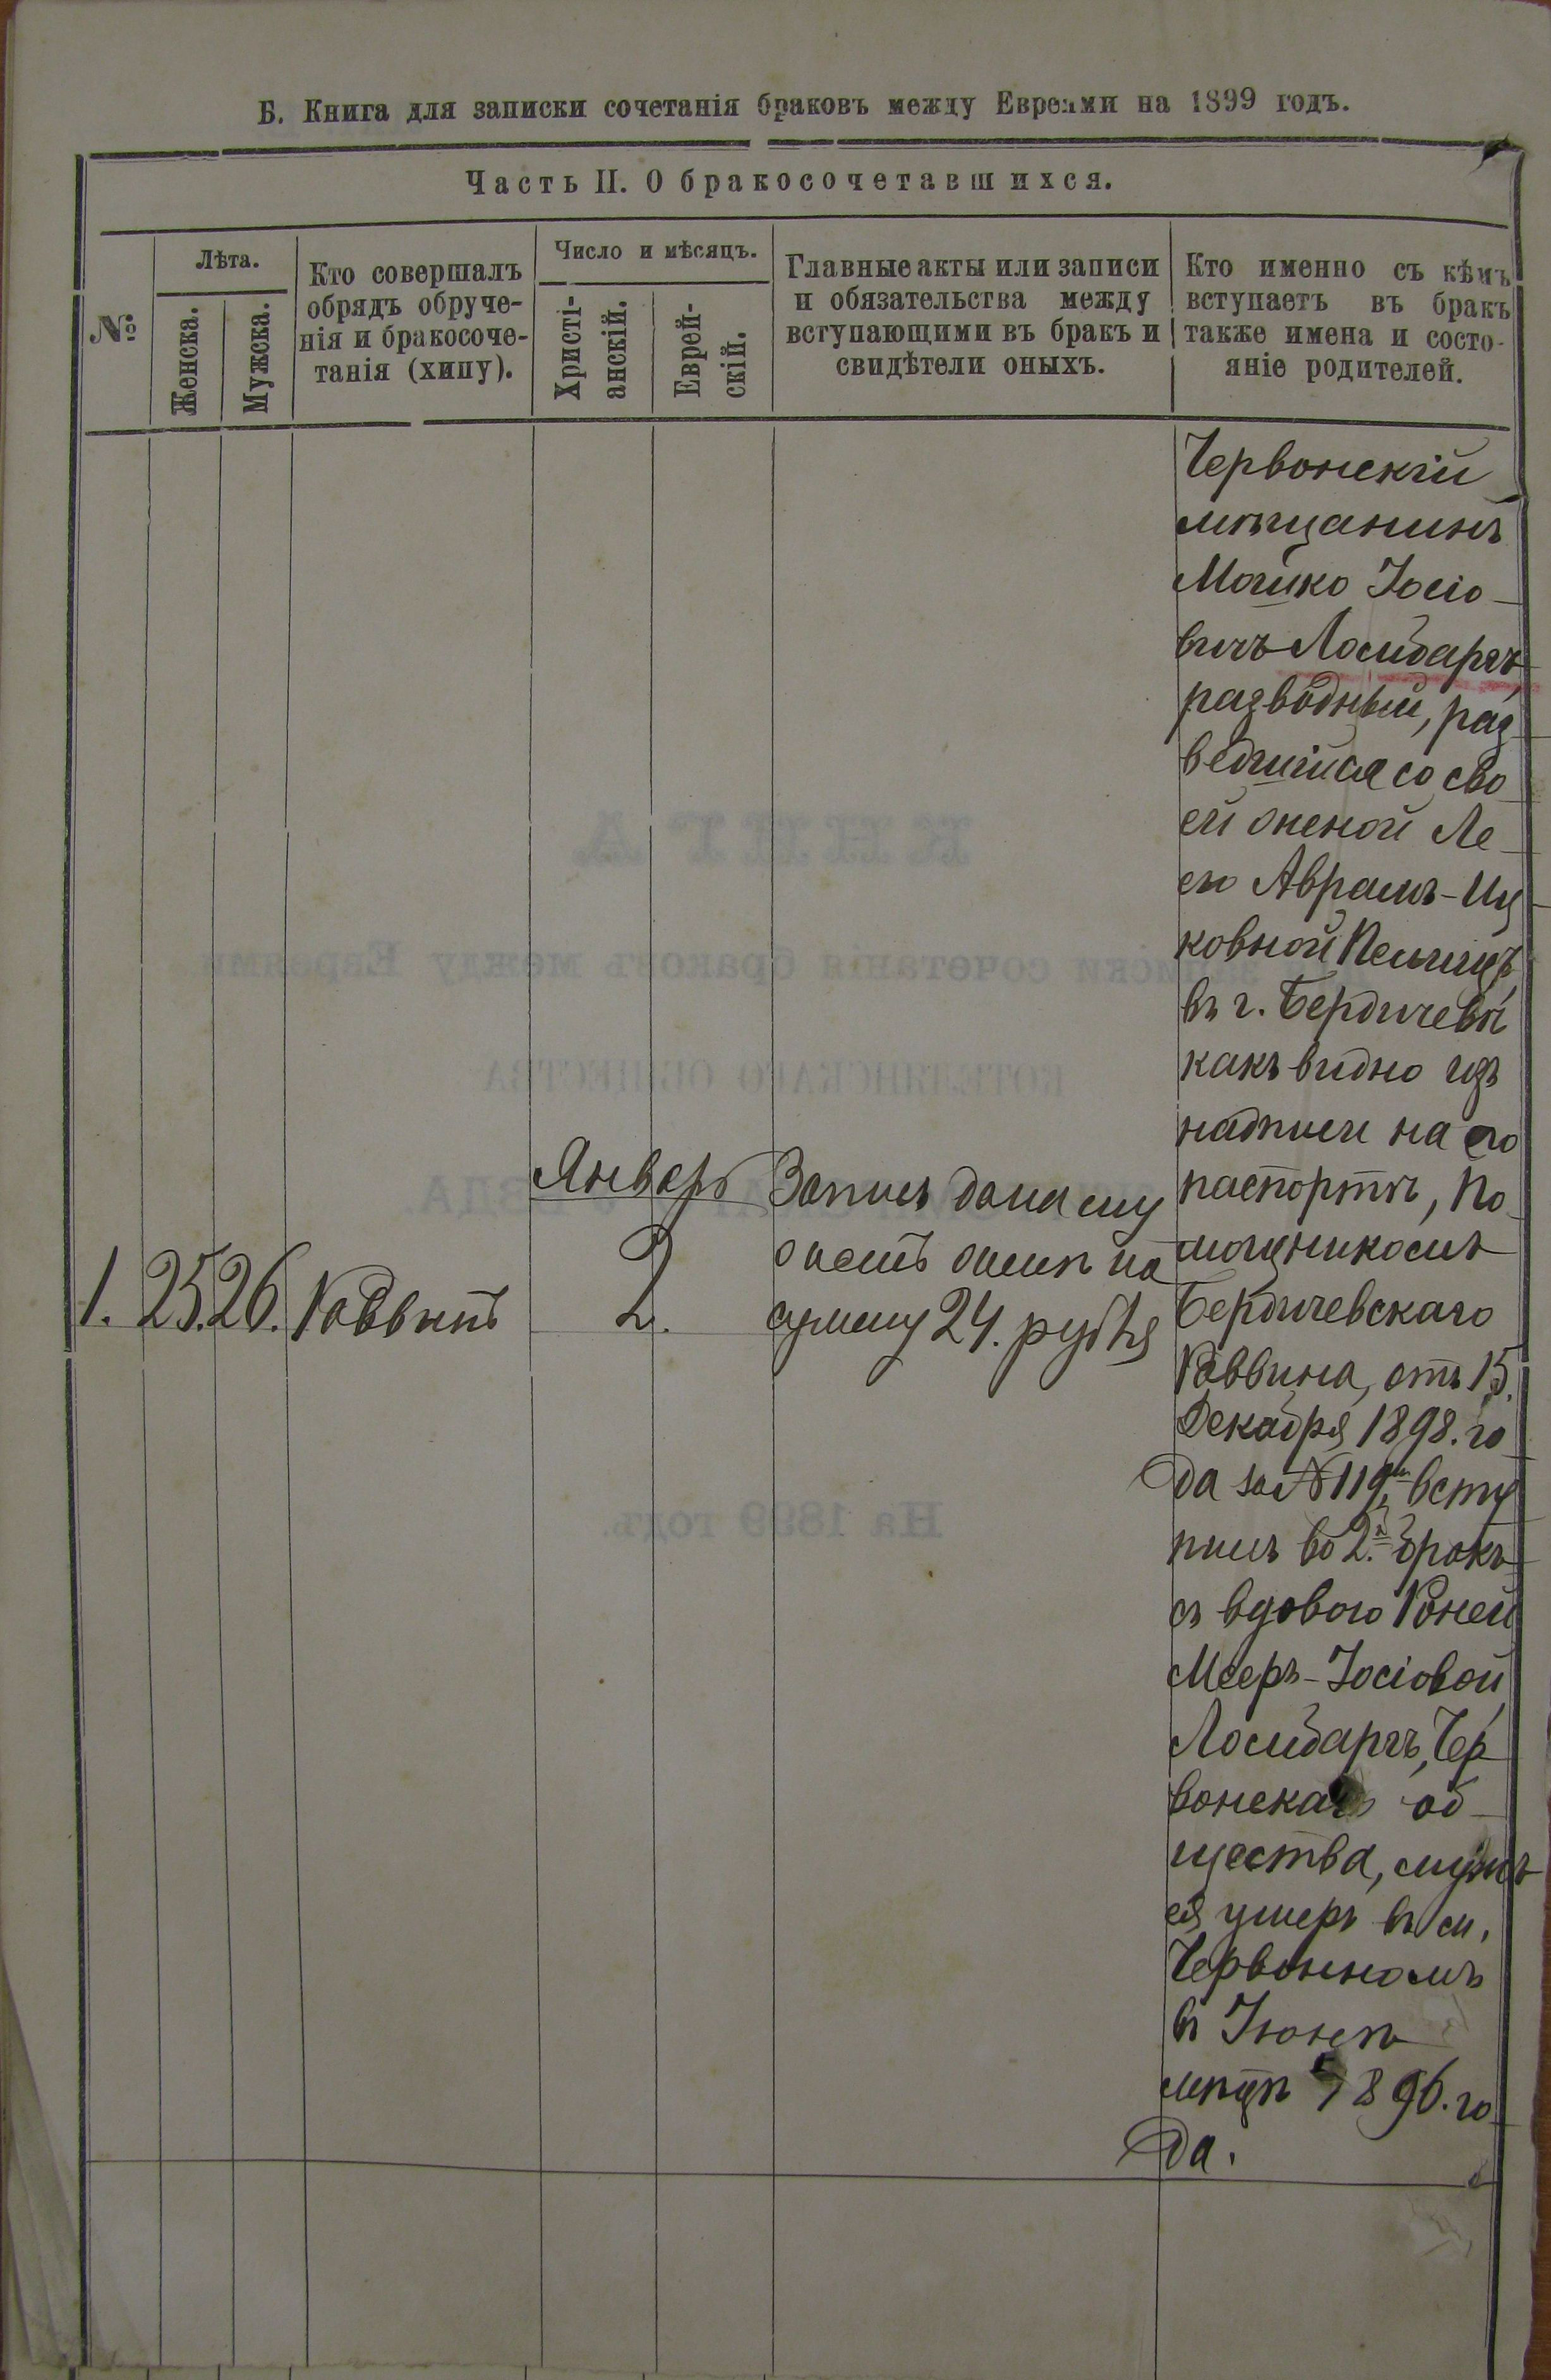 Б. Книга для записки сочетанія браковъ между Евреями на 1899 годъ.
Часть II. О бракосочетавшихся.
№
Лѣта.
Женска.
Мужска.
Кто совершалъ
обрядъ обруче-
нія и бракосоче-
танія (хипу).
Число и мѣсяцъ.
Христі-
анскій.
Еврей-
скій.
Главные акты или записи
и обязательства между
вступающими въ бракъ и
свидѣтели оныхъ.
Кто именно съ кѣмъ
вступаетъ въ бракъ
также имена и состо-
яніе родителей.
1. 25. 26. Раввинъ
Январь
2.
Запись дана
на
сумму 24. рубля
Червонскій
мѣщанинъ
Мошко Іосіо-
вичъ Лошбаргъ,
разводный, раз-
ведшійся со сво-
ей женой Ле-
ею Аврамъ-Иц-
ковной
въ г. Бердичевѣ
какъ видно изъ
надписи на его
паспортѣ, По-
мощникомъ
Бердичевскаго
Раввина, отъ 15.
Декабря 1898. го-
да за № 119, всту-
пилъ во 2.й бракъ
съ вдовою
Мееръ-Іосіовой
Лошбаргъ, Чер-
вонскаго об-
щества, мужъ
ея умеръ въ м.
Червонномъ
въ Іюнѣ
мцѣ 1896. го-
да.
КНИГА
записки сочетанія браковъ между Евреями
КОТЕЛЯНСКАГО ОБЩЕСТВА
На 1899 годъ.